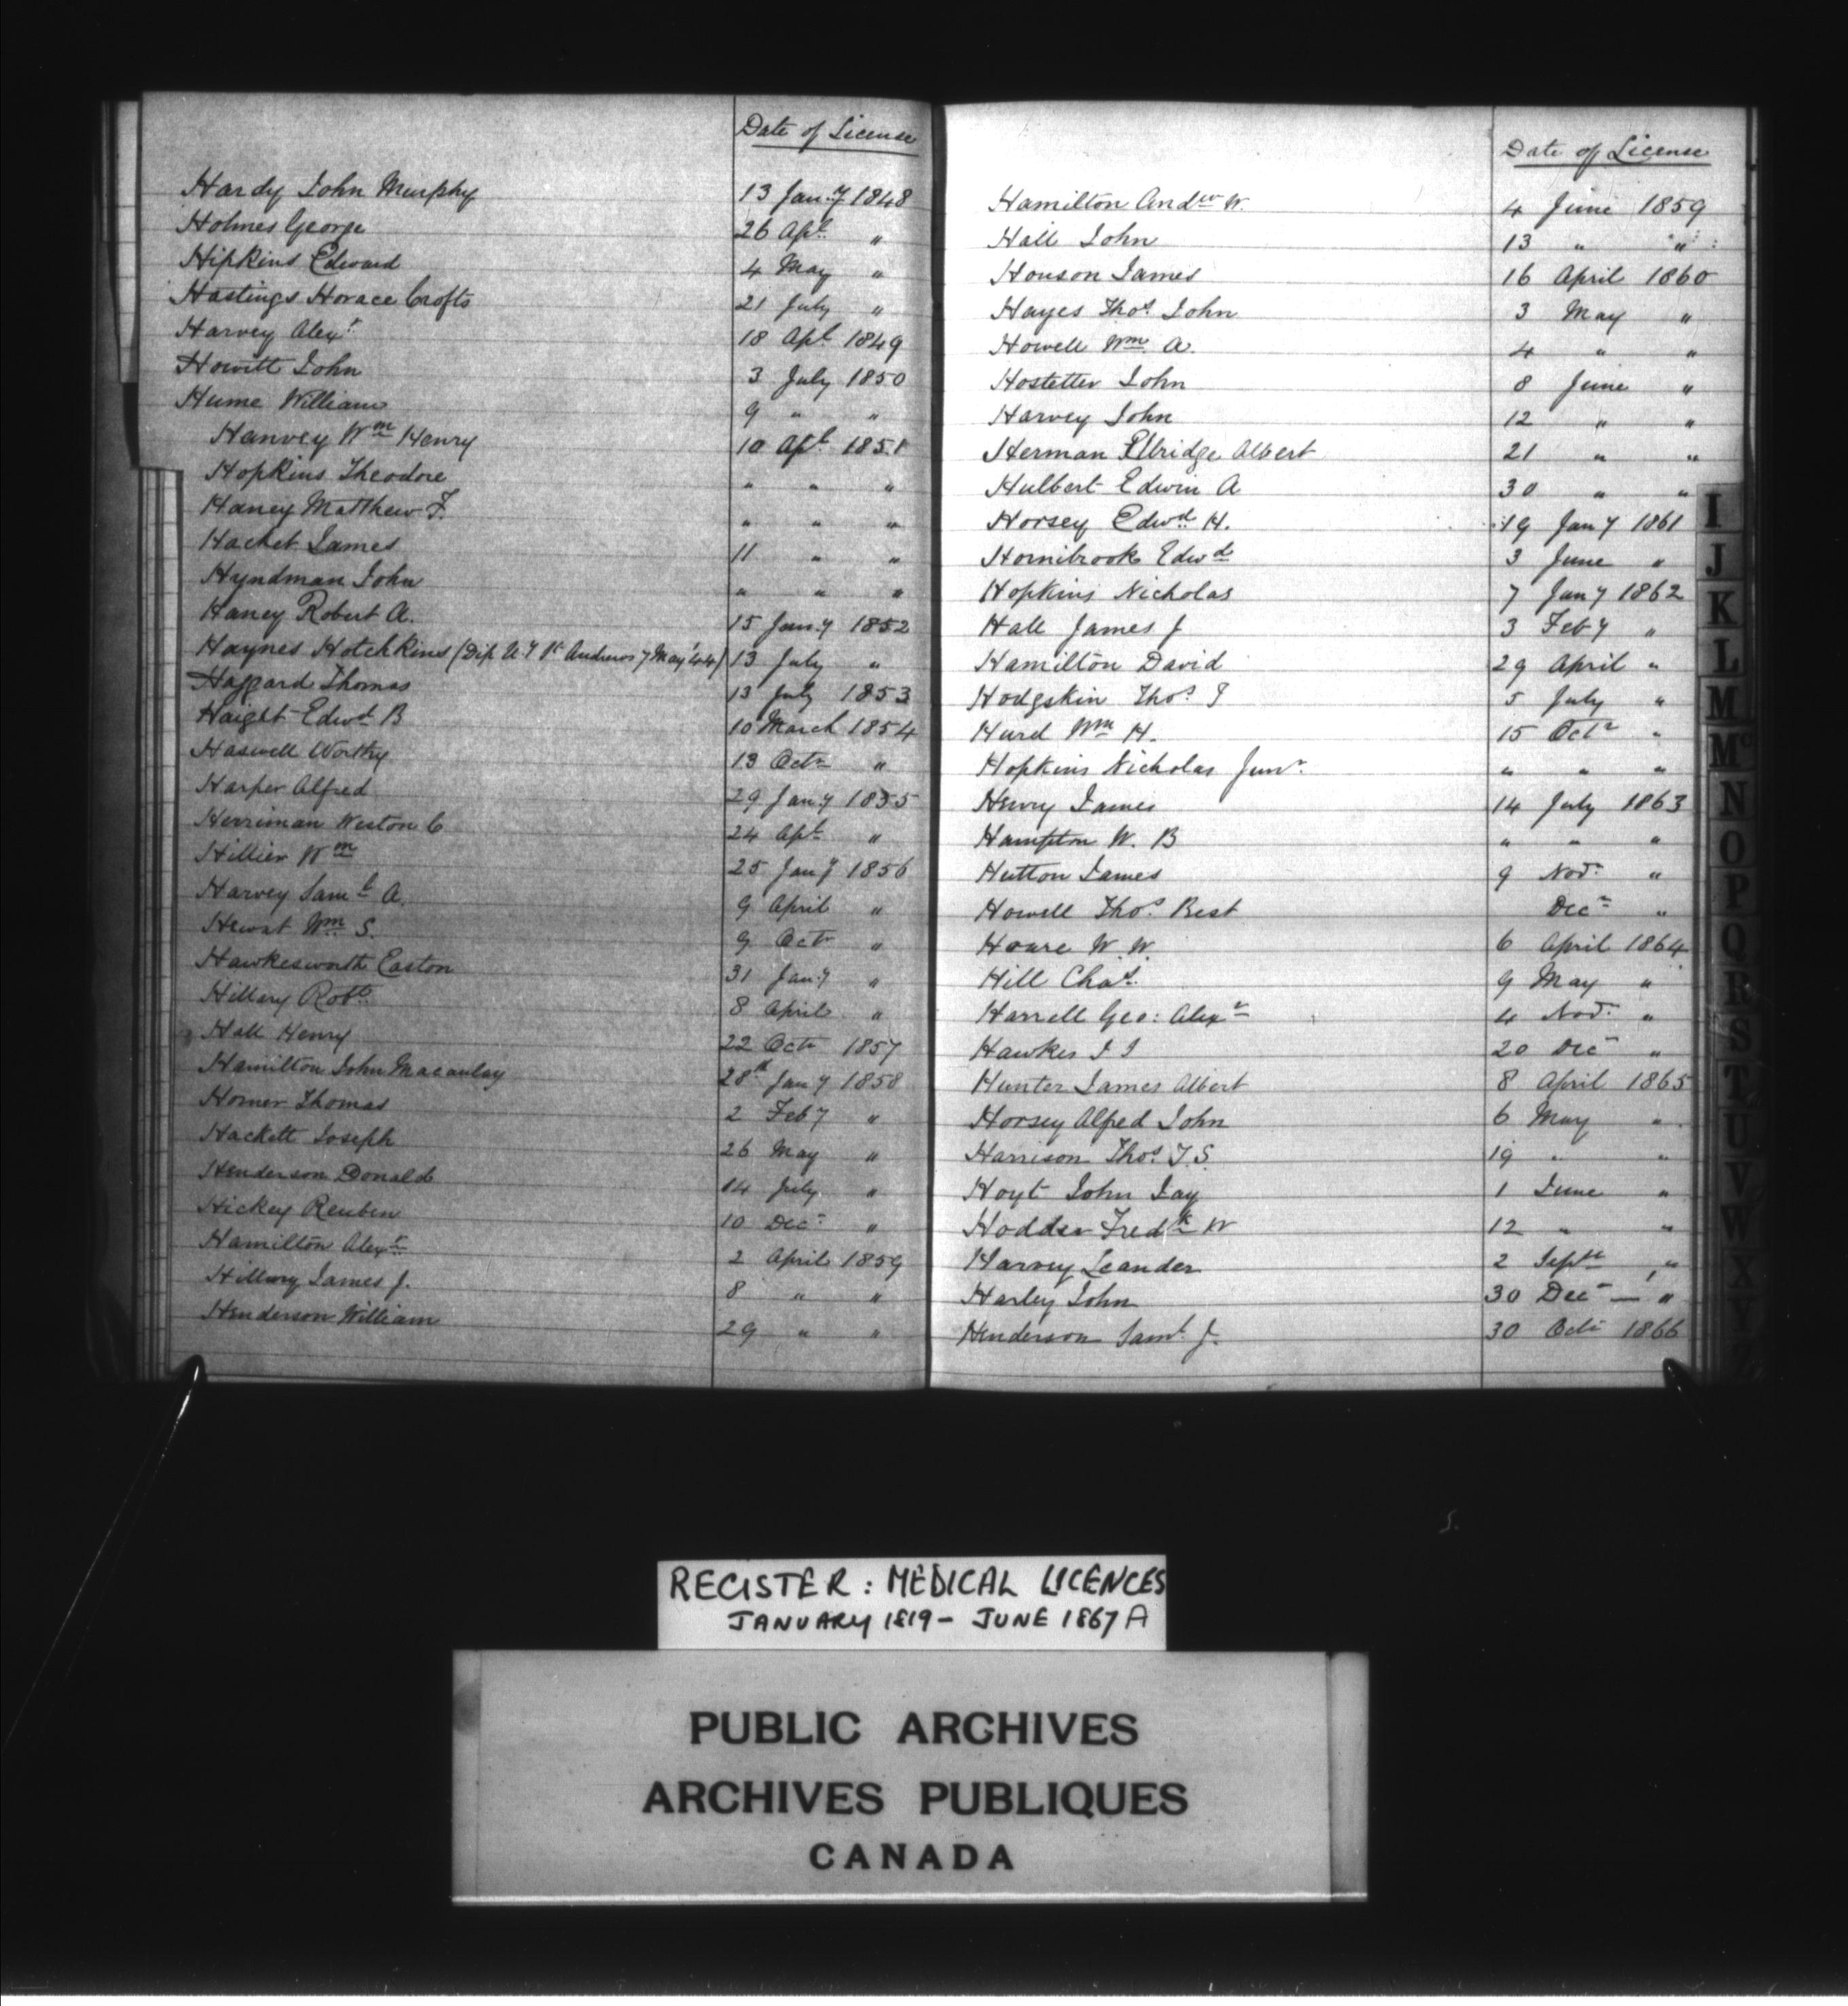 Date of License
Hardy John Murphy 13 Jany 1848
Holmes George 26 Apl "
Hipkins Edward 4 May "
Hastings Horace Crofts 21 July "
Harvey Alexr 18 Apl 1849
Howitt John 3 July 1850
Hume William 9 " "
Hanvey Wm Henry 10 Apl 1851
Hopkins Theodore " " "
Haney Matthew F. " " "
Hachet James 11 " "
Hyndman John " " "
Haney Robert A. 15 Jany 1852
Haynes Hotchkins (Dip U. St Andrews 7 May '44) 13 July "
Happard Thomas 13 July 1853
Haight Edwd B 10 March 1854
Haswell Worthy 13 Octr "
Harper Alfred 29 Jany 1855
Herriman Weston C 24 Apl "
Hillier Wm 25 Jany 1856
Harvey Saml A. 9 April "
Hewat Wm S. 9 Octr "
Hawkesworth Easton 31 Jany "
Hillary Robt 8 April "
Hall Henry 22 Octr 1857
Hamilton John Macaulay 28th Jany 1858
Horner Thomas 2 Feby "
Hackett Joseph 26 May "
Henderson Donald 14 July "
Hickey Reuben 10 Decr "
Hamilton Alexr 2 April 1859
Hillary James J. 8 " "
Henderson William 29 " "
Date of License
Hamilton Andw W. 4 June 1859
Hall John 13 " "
Houson James 16 April 1860
Hayes Thos John 3 May "
Howell Wm A. 4 " "
Hostetter John 8 June "
Harvey John 12 " "
Herman Elbridge Albert 21 " "
Hulbert Edwin A 30 " "
Horsey Edwd H. 19 Jany 1861
Hornibrook Edwd 3 June "
Hopkins Nicholas 7 Jany 1862
Hall James J 3 Feby "
Hamilton David 29 April "
Hodgskin Thos I 5 July "
Hurd Wm H. 15 Octr "
Hopkins Nicholas Junr " " "
Henry James 14 July 1863
Hampton W. B " " "
Hutton James 9 Novr "
Howell Thos Best Decr "
Hoare W. W. 6 April 1864
Hill Chas. 9 May "
Harrell Geo: Alexr 4 Novr "
Hawkes J J 20 Decr "
Hunter James Albert 8 April 1865
Horsey Alfred John 6 May "
Harrison Thos T. S. 19 " "
Hoyt John Jay 1 June "
Hodder Fredk W 12 " "
Harvey Leander 2 Septr "
Harley John 30 Decr — "
Henderson Saml J. 30 Octr 1866
I
J
K
L
M
Mc
N
O
P
Q
R
S
T
U
V
W
X
Y
Z
REGISTER: MEDICAL LICENCES
JANUARY 1819 – JUNE 1867 A
PUBLIC ARCHIVES
ARCHIVES PUBLIQUES
CANADA